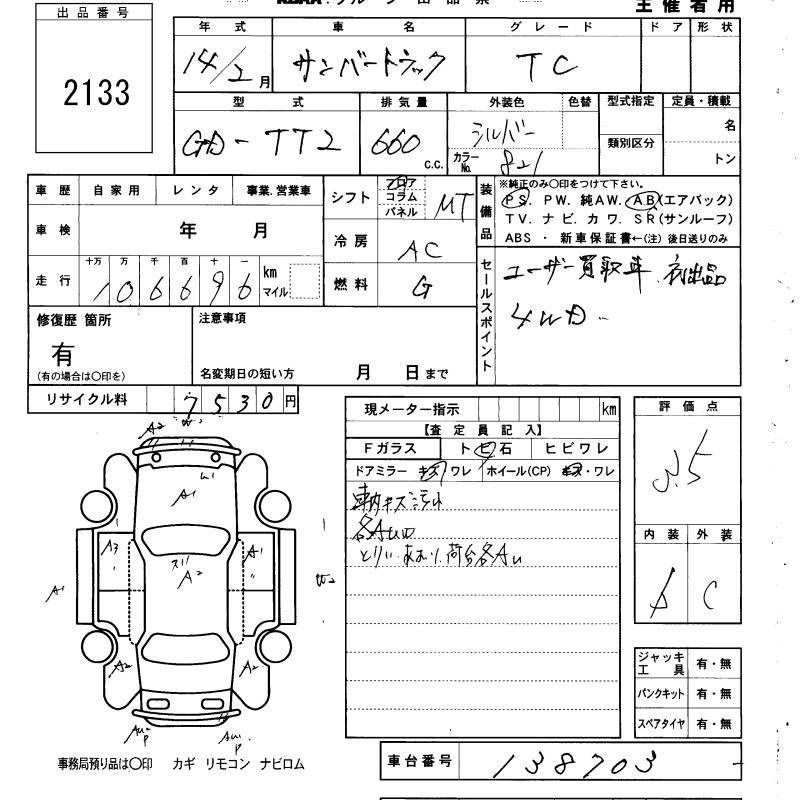 出品番号
2133
主催者用
年式 車名 グレード ドア 形状
14/2月 サンバートラック TC
型式 排気量 外装色 色替 型式指定 定員・積載
GD-TT2 660 c.c. シルバー 類別区分 名
カラーNo. 821 トン
車歴 自家用 レンタ 事業.営業車
車検 年 月
走行 十万 万 千 百 十 一 km マイル
106696
シフト フロア コラム パネル MT
冷房 AC
燃料 G
装備品
※純正のみ〇印をつけて下さい。
PS. PW. 純AW. AB(エアバック)
TV. ナビ. カワ. SR(サンルーフ)
ABS ・ 新車保証書←(注) 後日送りのみ
セールスポイント
ユーザー買取車 初出品
4WD
修復歴 箇所
有
(有の場合は〇印を)
注意事項
名変期日の短い方 月 日まで
リサイクル料 7530円
現メーター指示 km
【査定員記入】
Fガラス トビ石 ヒビワレ
ドアミラー キズ ワレ ホイール(CP) キズ・ワレ
車内キズ汚れ
各AU
とりい、あおり、荷台各AU
評価点
3.5
内装 外装
C
A2 W2
U1
A1
A3
A1
スリ
A2
A1
W2
A2
A2
AU2 P
AU1 P
ジャッキ工具 有・無
パンクキット 有・無
スペアタイヤ 有・無
事務局預り品は〇印 カギ リモコン ナビロム
車台番号 138703